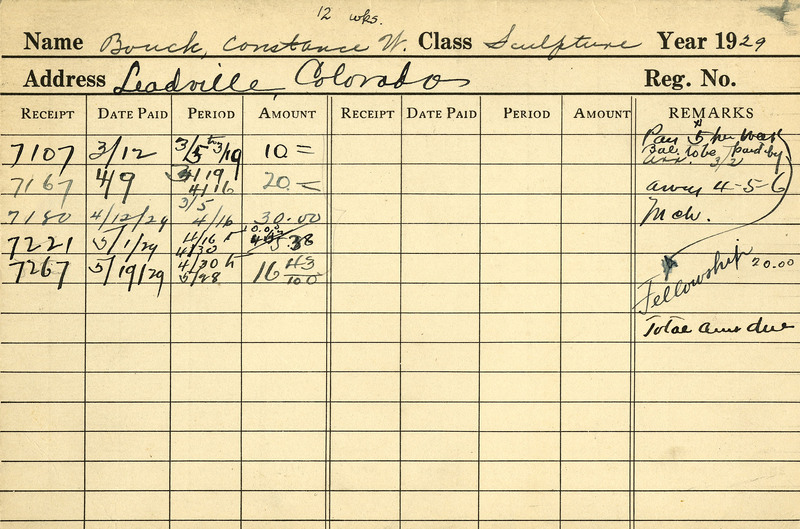 12 wks.
Name Bouck, Constance W. Class Sculpture Year 1929
Address Leadville, Colorado Reg. No.
RECEIPT DATE PAID PERIOD AMOUNT RECEIPT DATE PAID PERIOD AMOUNT REMARKS
Pay $5 per week
Bal. to be paid by
3/2
7107 3/12 3/5 to 3/19 10 =
7167 4/9 3/19 4/16 20. = away 4-5-6
7180 4/12/29 3/5 4/16 30.00 Mch.
7221 5/1/29 4/16 to 4/30 38
7267 5/19/29 4/30 to 5/28 16 43/100
Fellowship 20.00
Total amt due